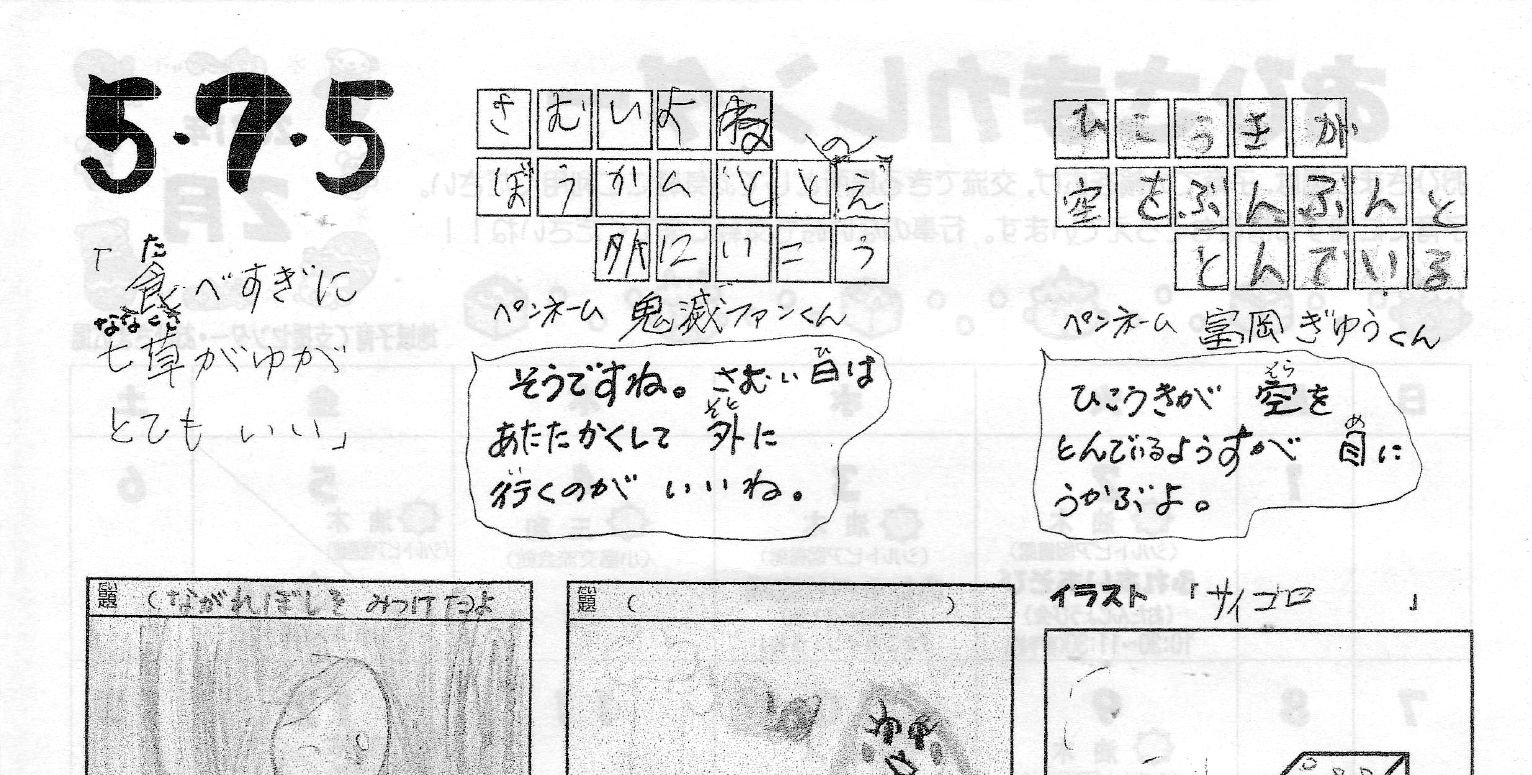 5・7・5
「食べすぎに
た
七草がゆが
ななくさ
とても いい」
さむいよ
ぼうかんしとえ
の
外にいこう
ペンネーム 鬼滅ファンくん
そうですね。さむい日は
ひ
あたたかくして 外に
そと
行くのが いいね。
い
ひこうきが
空をぶんぶんと
とんでいる
ペンネーム 冨岡ぎゆうくん
ひこうきが 空を
そら
とんでいるようすが 目に
め
うかぶよ。
題 (ながれぼしを みつけたよ
題 ( )
イラスト 「サイコロ 」